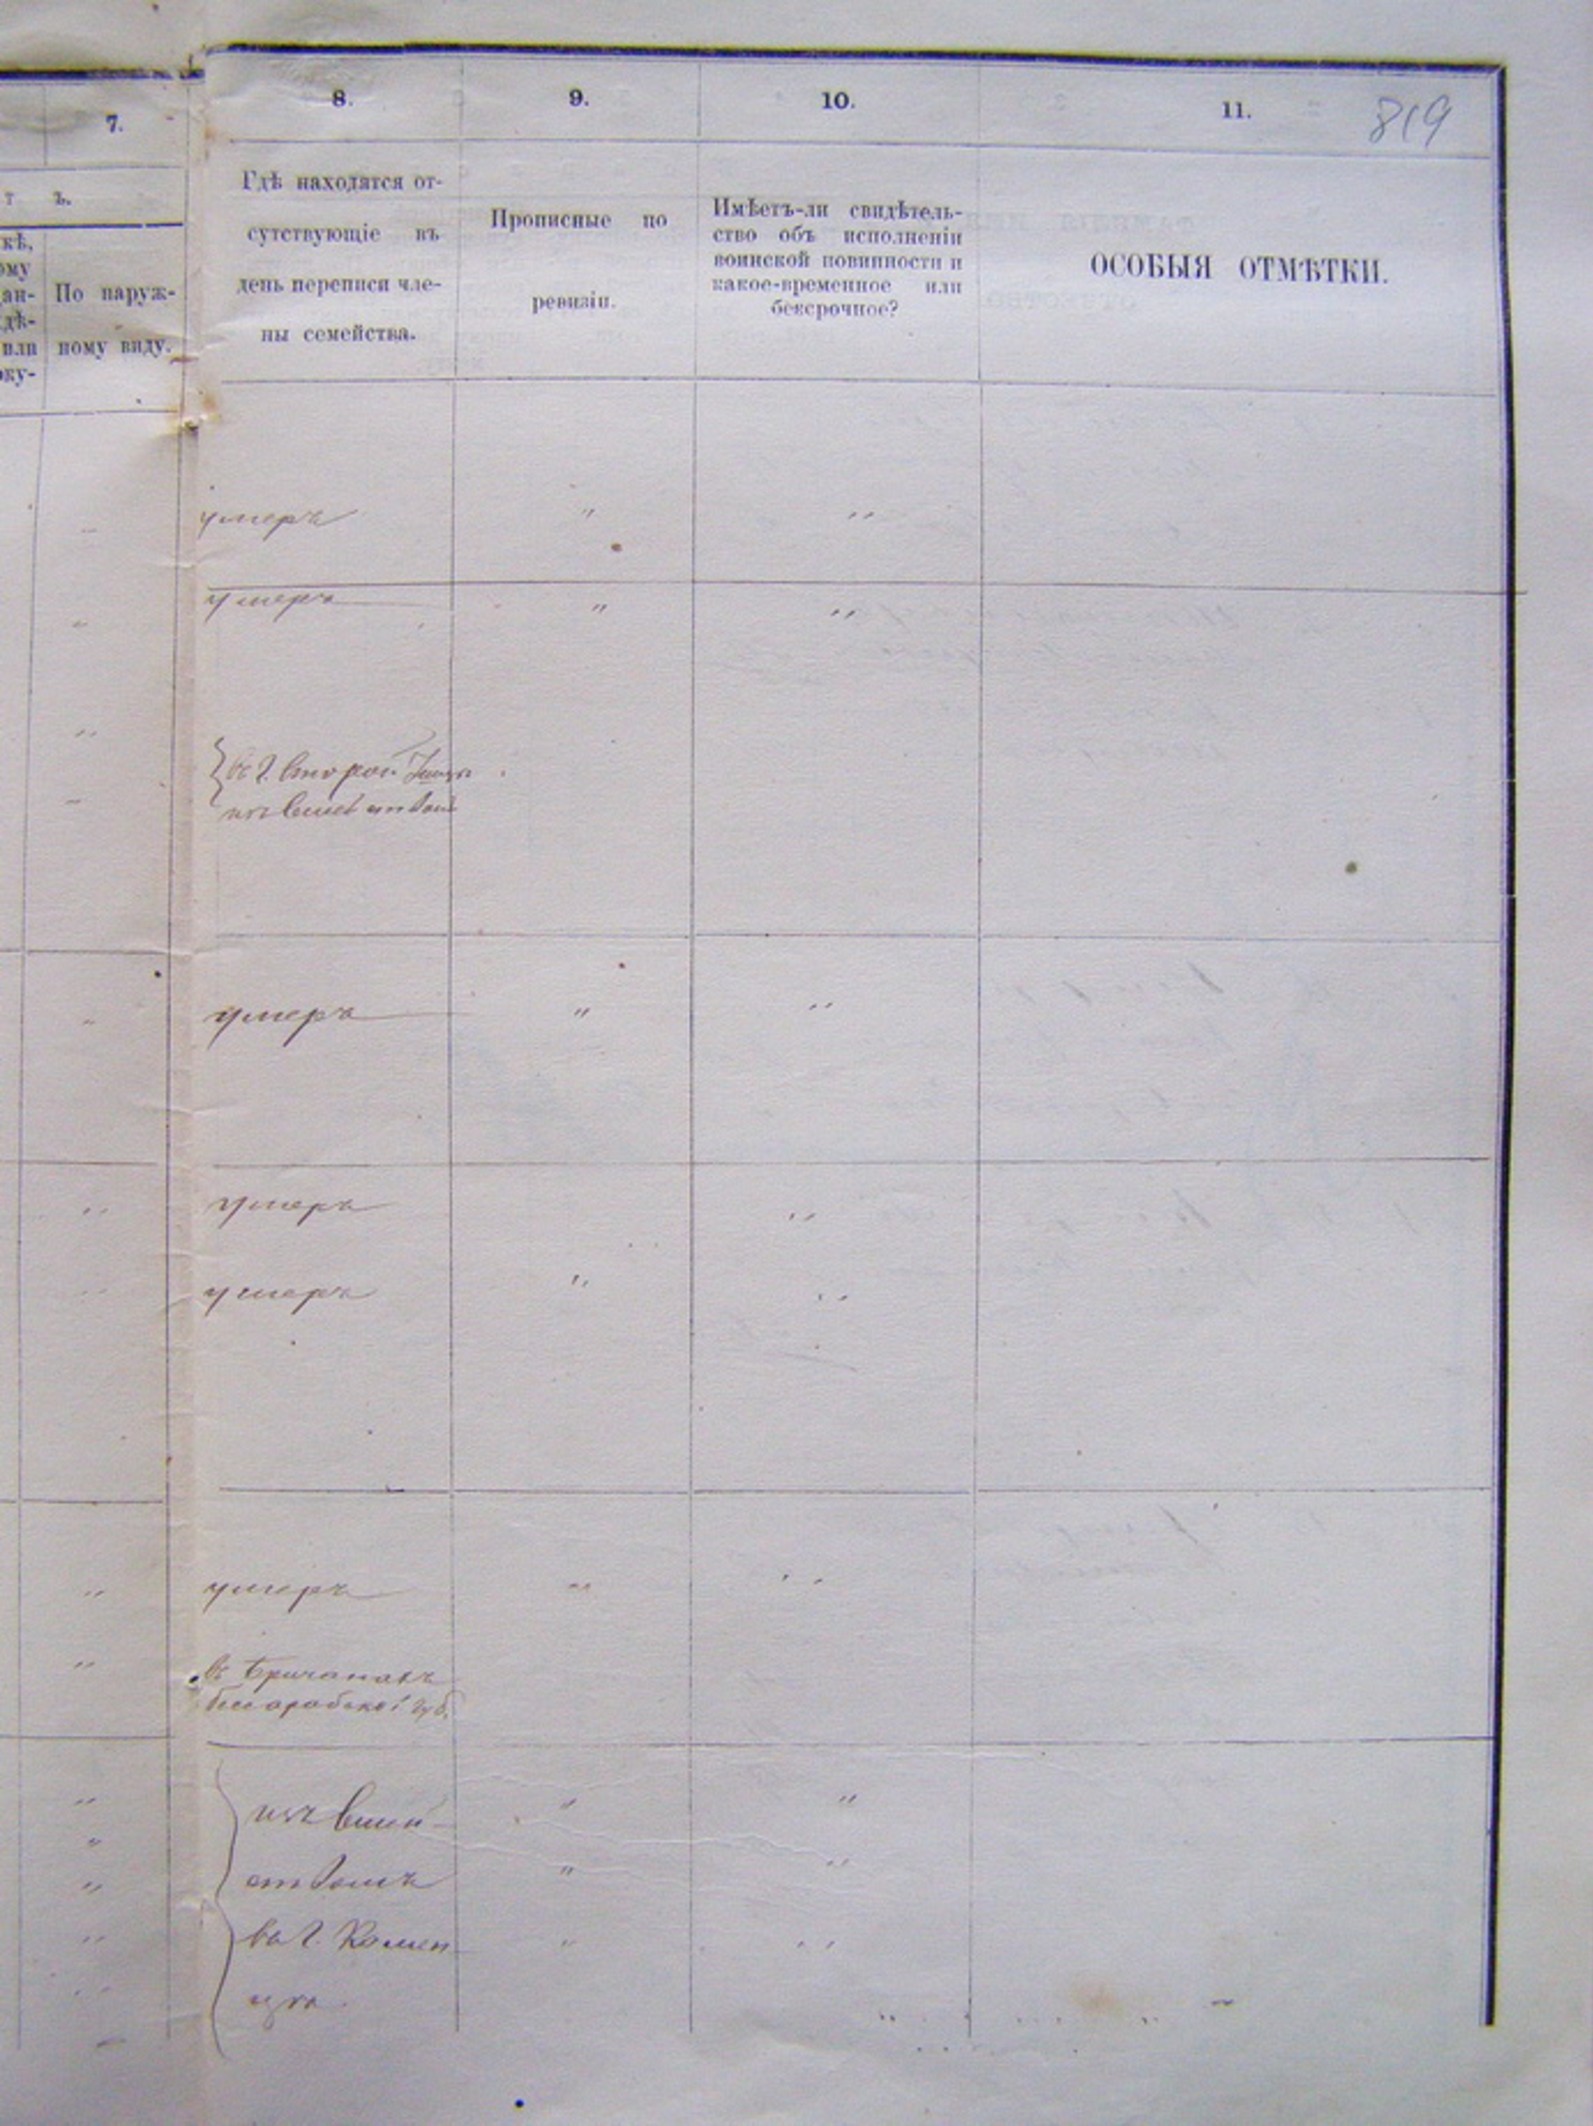 7.
8.
9.
10.
11.
819
т ъ.
кѣ,
ому
ан-
дѣ-
или
оку-
По наруж-
ному виду.
Гдѣ находятся от-
сутствующіе въ
день переписи чле-
ны семейства.
Прописные по
ревизіи.
Имѣетъ-ли свидѣтель-
ство объ исполненіи
воинской повинности и
какое-временное или
безсрочное?
ОСОБЫЯ ОТМѢТКИ.
умеръ " "
умеръ " "
въ г. Второй
умеръ " "
умеръ "
умеръ " "
умеръ " "
въ Бричанахъ
Бессарабской губ.
" "
"
въ г. Камен
цѣ " "